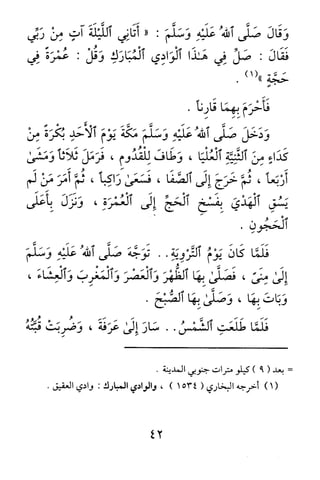 وَقَالَ صَلَّى ٱللهُ عَلَيْهِ وَسَلَّمَ : « أَتَانِي ٱللَّيْلَةَ آتٍ مِنْ رَبِّي
فَقَالَ : صَلِّ فِي هَـٰذَا ٱلْوَادِي ٱلْمُبَارَكِ وَقُلْ : عُمْرَةٌ فِي
حَجَّةٍ »(١) .
فَأَحْرَمَ بِهِمَا قَارِناً .
وَدَخَلَ صَلَّى ٱللهُ عَلَيْهِ وَسَلَّمَ مَكَّةَ يَوْمَ ٱلْأَحَدِ بُكْرَةً مِنْ
كَدَاءٍ مِنَ ٱلثَّنِيَّةِ ٱلْعُلْيَا ، وَطَافَ لِلْقُدُومِ ، فَرَمَلَ ثَلَاثاً وَمَشَىٰ
أَرْبَعاً ، ثُمَّ خَرَجَ إِلَى ٱلصَّفَا ، فَسَعَىٰ رَاكِباً ، ثُمَّ أَمَرَ مَنْ لَمْ
يَسُقِ ٱلْهَدْيَ بِفَسْخِ ٱلْحَجِّ إِلَى ٱلْعُمْرَةِ ، وَنَزَلَ بِأَعْلَى
ٱلْحَجُونِ .
فَلَمَّا كَانَ يَوْمُ ٱلتَّرْوِيَةِ .. تَوَجَّهَ صَلَّى ٱللهُ عَلَيْهِ وَسَلَّمَ
إِلَىٰ مِنىً ، فَصَلَّىٰ بِهَا ٱلظُّهْرَ وَٱلْعَصْرَ وَٱلْمَغْرِبَ وَٱلْعِشَاءَ ،
وَبَاتَ بِهَا ، وَصَلَّىٰ بِهَا ٱلصُّبْحَ .
فَلَمَّا طَلَعَتِ ٱلشَّمْسُ .. سَارَ إِلَىٰ عَرَفَةَ ، وَضُرِبَتْ قُبَّتُهُ
= بعد ( ٩ ) كيلو مترات جنوبي المدينة .
(١) أخرجه البخاري ( ١٥٣٤ ) ، والوادي المبارك : وادي العقيق .
٤٢